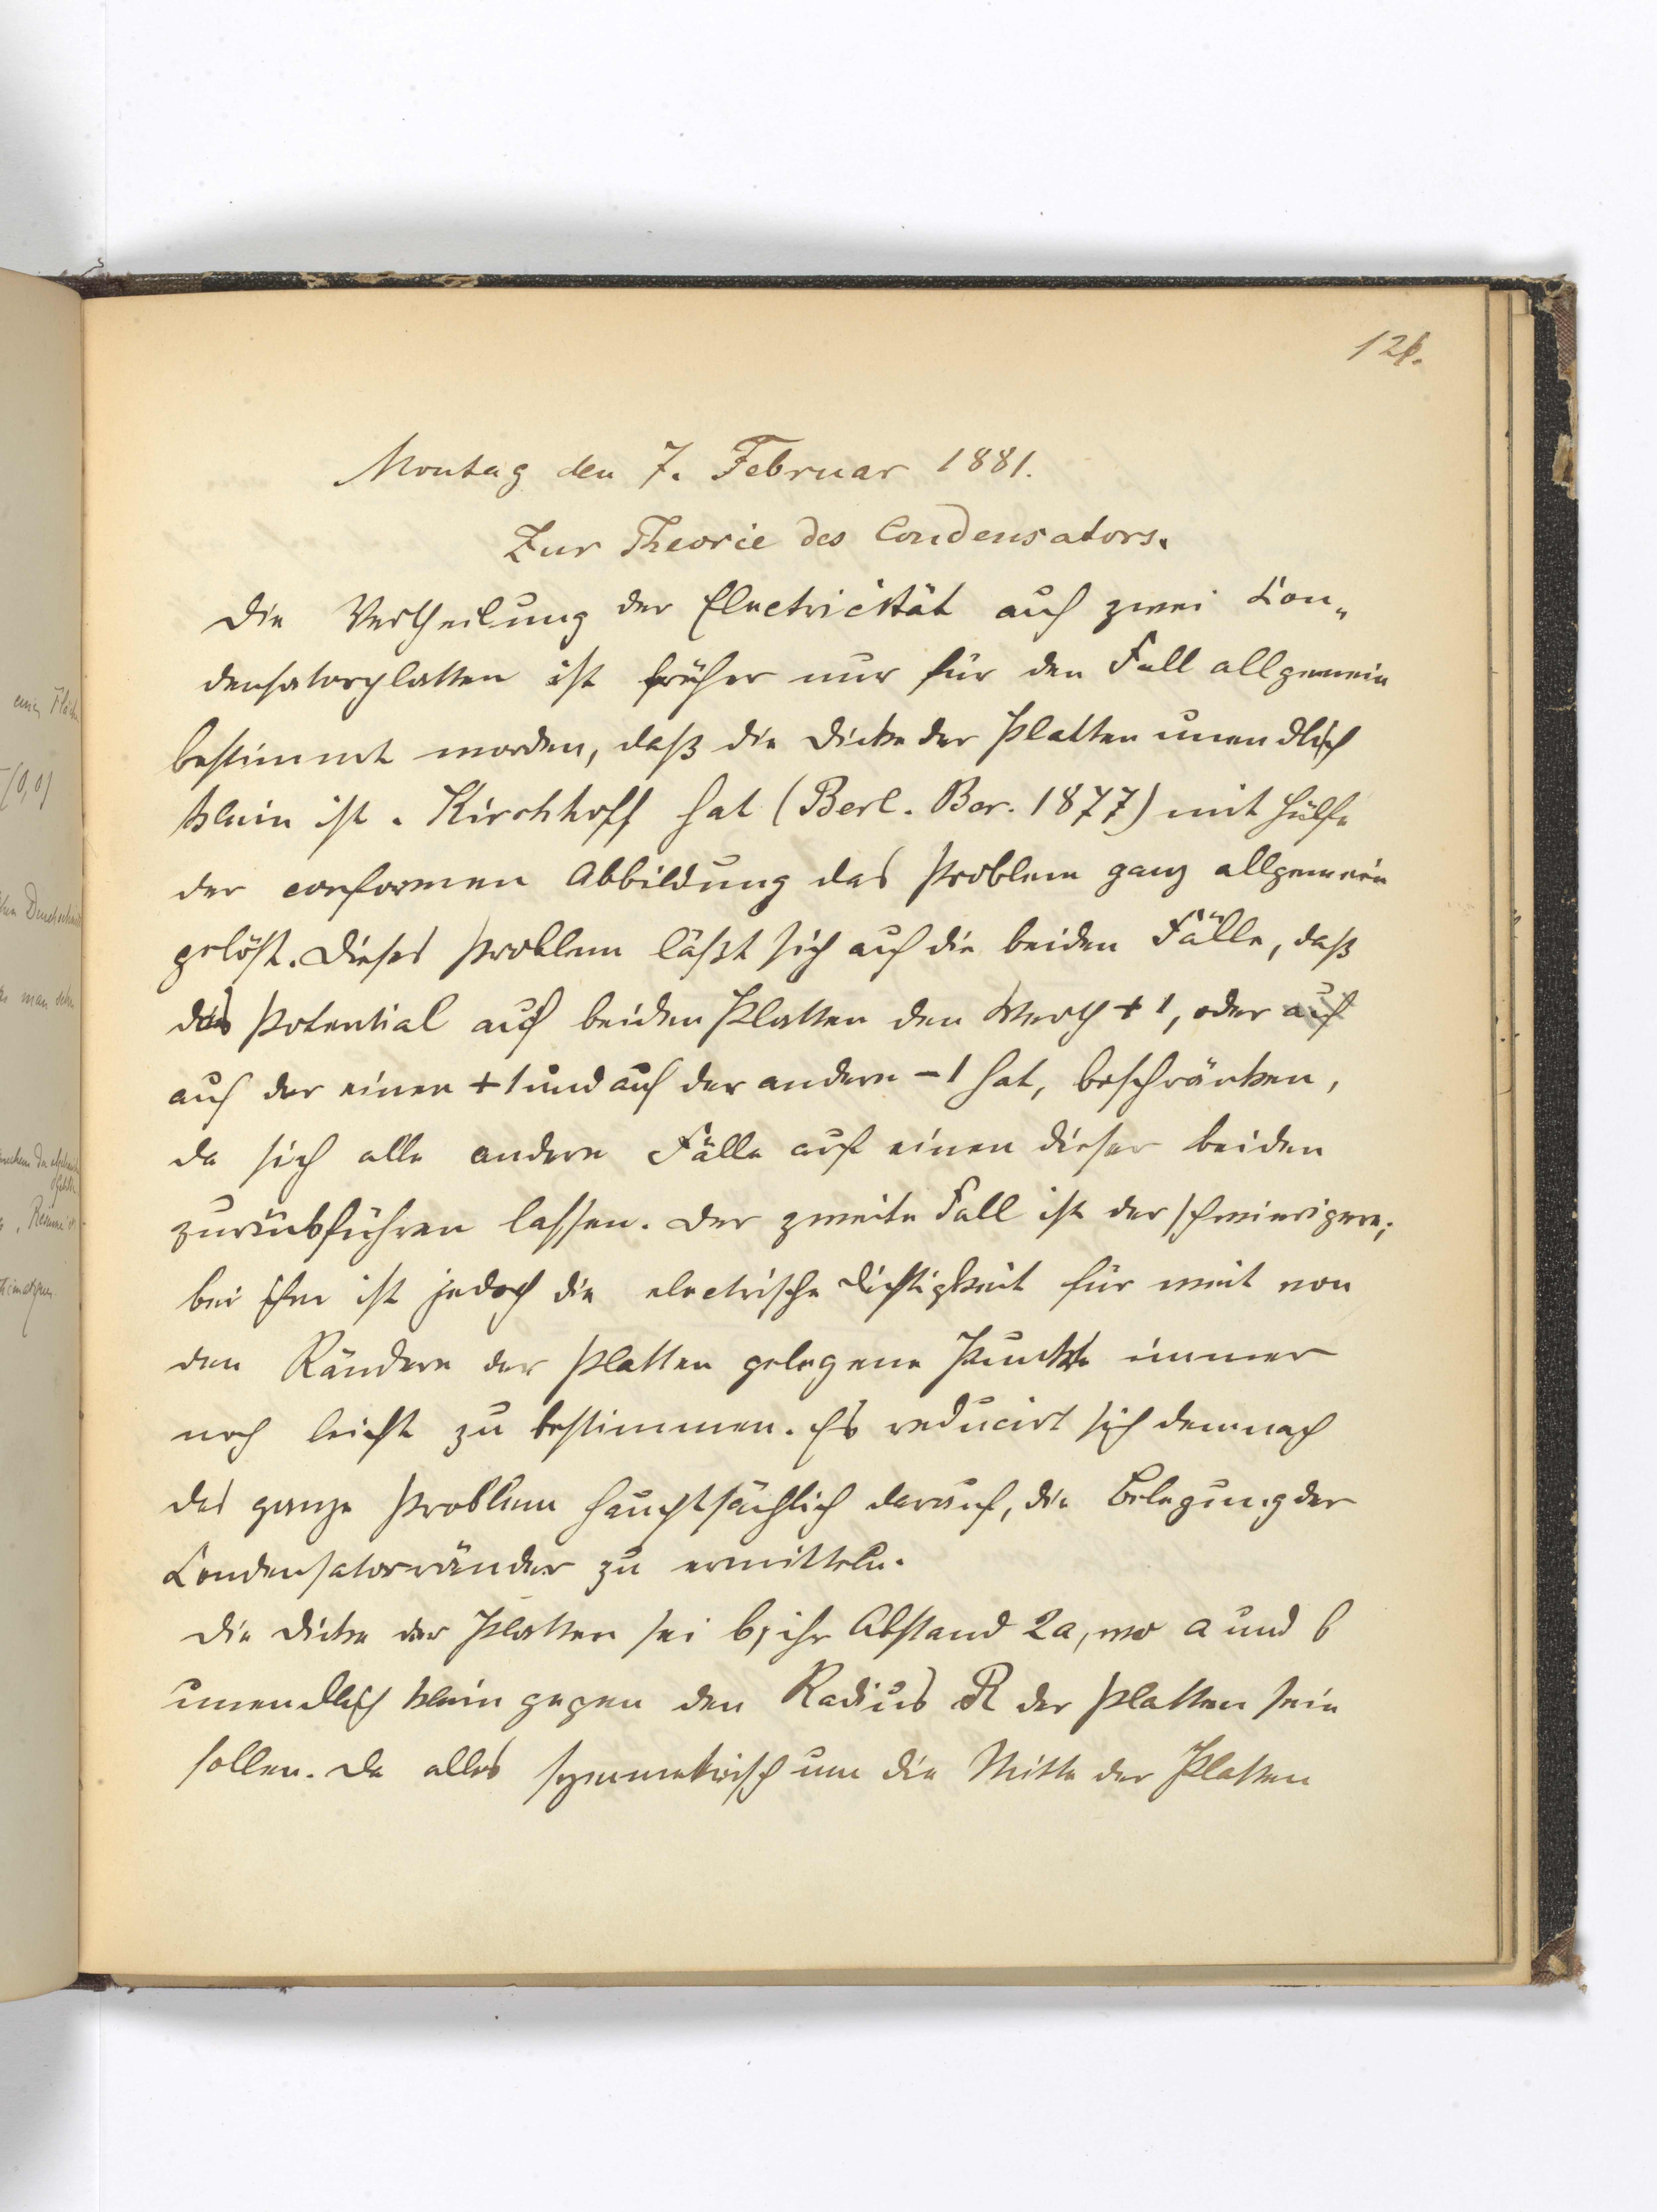 126.
Montag den 7. Februar 1881.
Zur Theorie des Condensators.
Die Vertheilung der Electricität auf zwei Con„
densatorplatten ist früher nur für den Fall allgemein
bestimmt worden, daß die Dicke der Platten unendlich
klein ist. Kirchhoff hat (Berl. Ber. 1877) mit Hülfe
der conformen Abbildung das Problem ganz allgemein
gelöst. Dieses Problem läßt sich auf die beiden Fälle, daß
das Potential auf beiden Platten den Werth + 1, oder auf
auf der einen + 1 und auf der andern – 1 hat, beschränken,
da sich alle andern Fälle auf einen dieser beiden
zurückführen lassen. Der zweite Fall ist der schwierigere;
bei ihm ist jedoch die electrische Dichtigkeit für weit von
den Rändern der Platten gelegene Punkte immer
noch leicht zu bestimmen. Es reducirt sich demnach
das ganze Problem hauptsächlich darauf, die Belegung der
Condensatorränder zu ermitteln.
Die Dicke der Platten sei b, ihr Abstand 2a, wo a und b
unendlich klein gegen den Radius R der Platten sein
sollen. Da alles symmetrisch um die Mitte der Platten